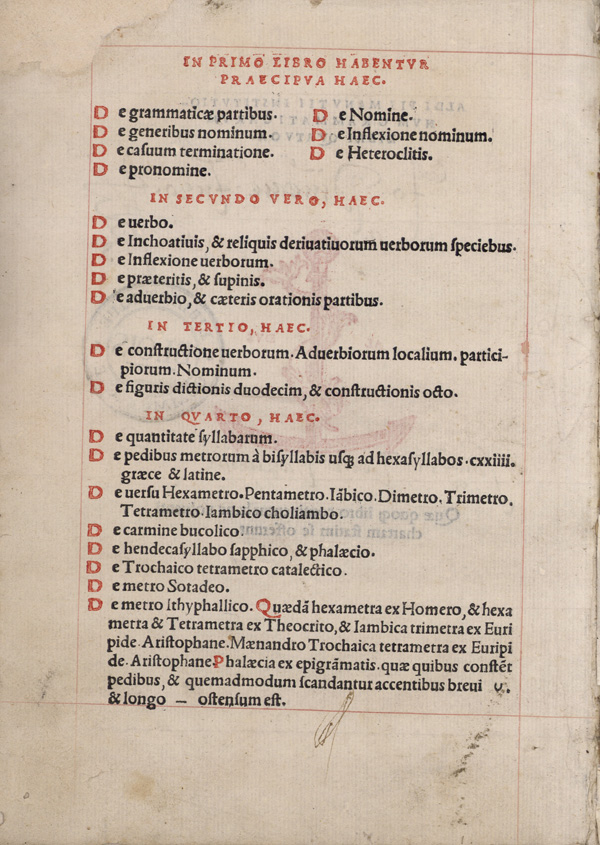 IN PRIMO LIBRO HABENTVR
PRAECIPVA HAEC.
De grammaticæ partibus.
De Nomine.
De generibus nominum.
De Inflexione nominum.
De caſuum terminatione.
De Heteroclitis.
De pronomine.
IN SECVNDO VERO, HAEC.
De uerbo.
De Inchoatiuis, & reliquis deriuatiuorum uerborum ſpeciebus.
De Inflexione uerborum.
De præteritis, & ſupinis.
De aduerbio, & cæteris orationis partibus.
IN TERTIO, HAEC.
De conſtructione uerborum. Aduerbiorum localium. partici-
piorum. Nominum.
De figuris dictionis duodecim, & conſtructionis octo.
IN QVARTO, HAEC.
De quantitate ſyllabarum.
De pedibus metrorum à biſyllabis uſq; ad hexaſyllabos. cxxiiii.
græce & latine.
De uerſu Hexametro. Pentametro. Iãbico. Dimetro. Trimetro.
Tetrametro. Iambico choliambo.
De carmine bucolico.
De hendecaſyllabo ſapphico, & phalæcio.
De Trochaico tetrametro catalectico.
De metro Sotadeo.
De metro Ithyphallico. Quædã hexametra ex Homero, & hexa
metra & Tetrametra ex Theocrito, & Iambica trimetra ex Euri
pide. Ariſtophane. Mænandro Trochaica tetrametra ex Euripi
de. Ariſtophane Phalæcia ex epigrãmatis. quæ quibus conſtẽt
pedibus, & quemadmodum ſcandantur accentibus breui ᴗ.
& longo — oſtenſum eſt.